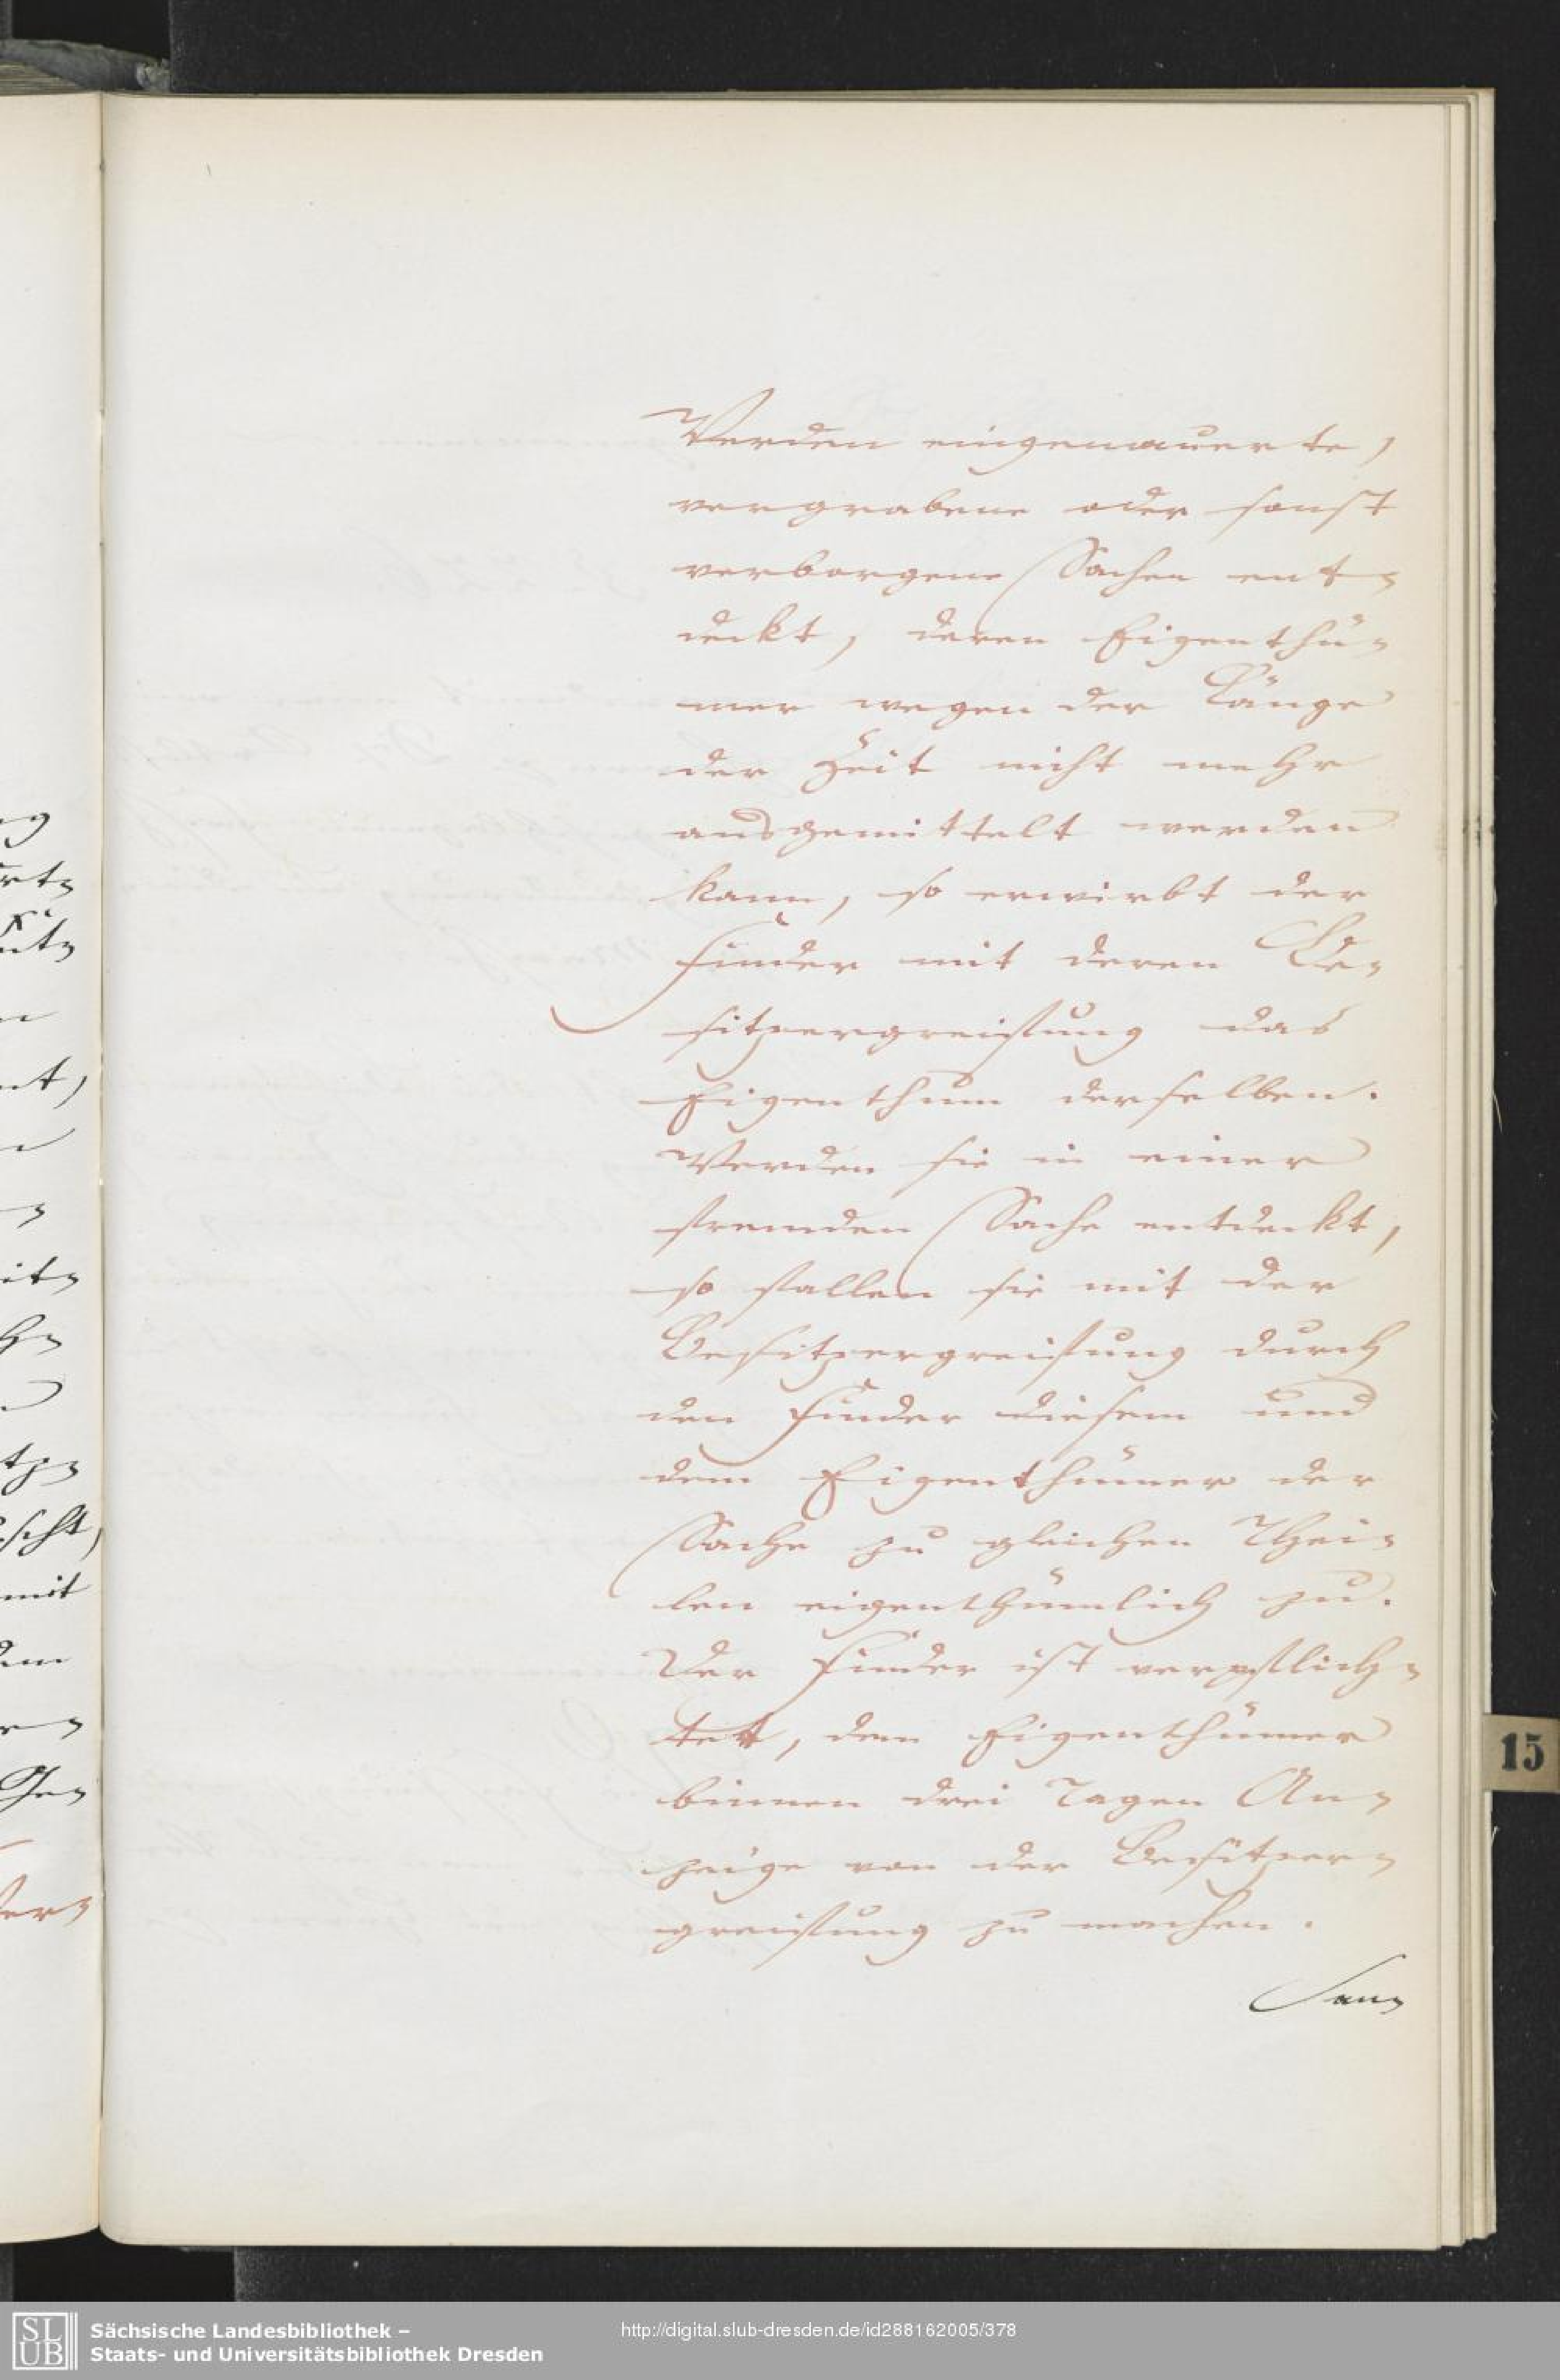 Werden eingemauerte,
vergrabene oder sonst
verborgene Sachen ent-
deckt, deren Eigenthü-
mer wegen der Länge
der Zeit nicht mehr
ausgemittelt werden
kann, so erwirbt der
Finder mit deren Be-
sitzergreifung das
Eigenthum derselben.
Werden sie in einer
fremden Sache entdeckt,
so fallen sie mit der
Besitzergreifung durch
den Finder diesem und
dem Eigenthümer der
Sache zu gleichen Thei-
len eigenthümlich zu.
Der Finder ist verpflich-
tet, dem Eigenthümer
binnen drei Tagen An-
zeige von der Besitzer-
greifung zu machen.
15
SLUB
Sächsische Landesbibliothek –
Staats- und Universitätsbibliothek Dresden
http://digital.slub-dresden.de/id288162005/378